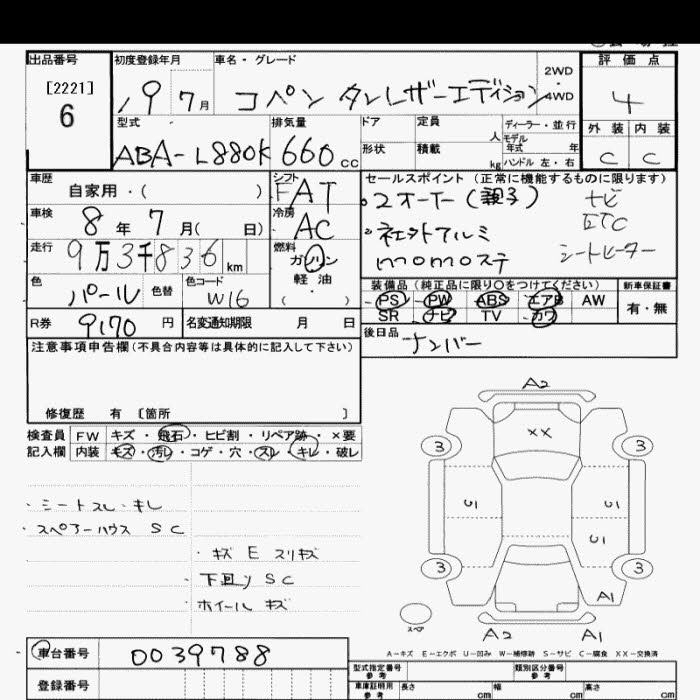 出品番号
[2221]
6
初度登録年月
19 7月
車名・グレード
コペン タンレザーエディション
2WD
・
4WD
評価点
4
外装 内装
C C
型式
ABA-L880K
排気量
660cc
ドア
形状
定員
人
積載
kg
ディーラー・並行
モデル
年式 年
ハンドル 左・右
車歴
自家用・( )
車検
8年7月( 日)
走行
9万3千836km
色
パール
色替
色コード
W16
シフト
FAT
冷房
AC
燃料
ガソリン
軽油
( )
セールスポイント(正常に機能するものに限ります)
・2オーナー(親子) ナビ
ETC
・社外アルミ シートヒーター
momoステ
装備品(純正品に限り○をつけてください)
PS PW ABS エアB AW
SR ナビ TV カワ
新車保証書
有・無
R券
9170円
名変通知期限 月 日
後日品
ナンバー
注意事項申告欄(不具合内容等は具体的に記入して下さい)
修復歴 有 〔箇所 〕
検査員
記入欄
FW キズ・飛石・ヒビ割・リペア跡・×要
内装 キズ・汚レ・コゲ・穴・スレ・キレ・破レ
・シートスレ・キレ
・スペアーハウス SC
・キズ E スリキズ
下回り SC
ホイール キズ
A2
XX
3 3
U1 U1
U1
3 3
A1
スペア
A2 A1
A-キズ E-エクボ U-凹み W-補修跡 S-サビ C-腐食 XX-交換済
車台番号
0039788
登録番号
型式指定番号
参考
類別区分番号
参考
車庫証明用
参考
長さ cm 幅 cm 高さ cm